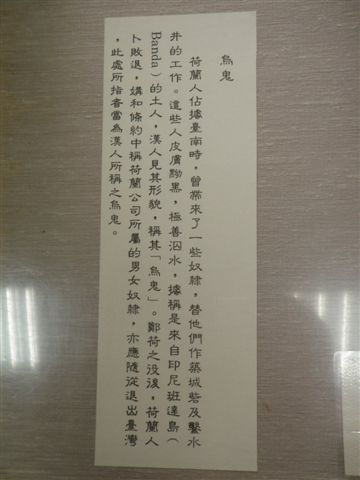 烏鬼
荷蘭人佔據臺南時，曾帶來了一些奴隸，替他們作築城砦及鑿水
井的工作。這些人皮膚黝黑，極善泅水，據稱是來自印尼班達島（
Banda）的土人，漢人見其形貌，稱其「烏鬼」。鄭荷之役後，荷蘭人
卜敗退，媾和條約中稱荷蘭公司所屬的男女奴隸，亦應隨從退出臺灣
，此處所指者當為漢人所稱之烏鬼。